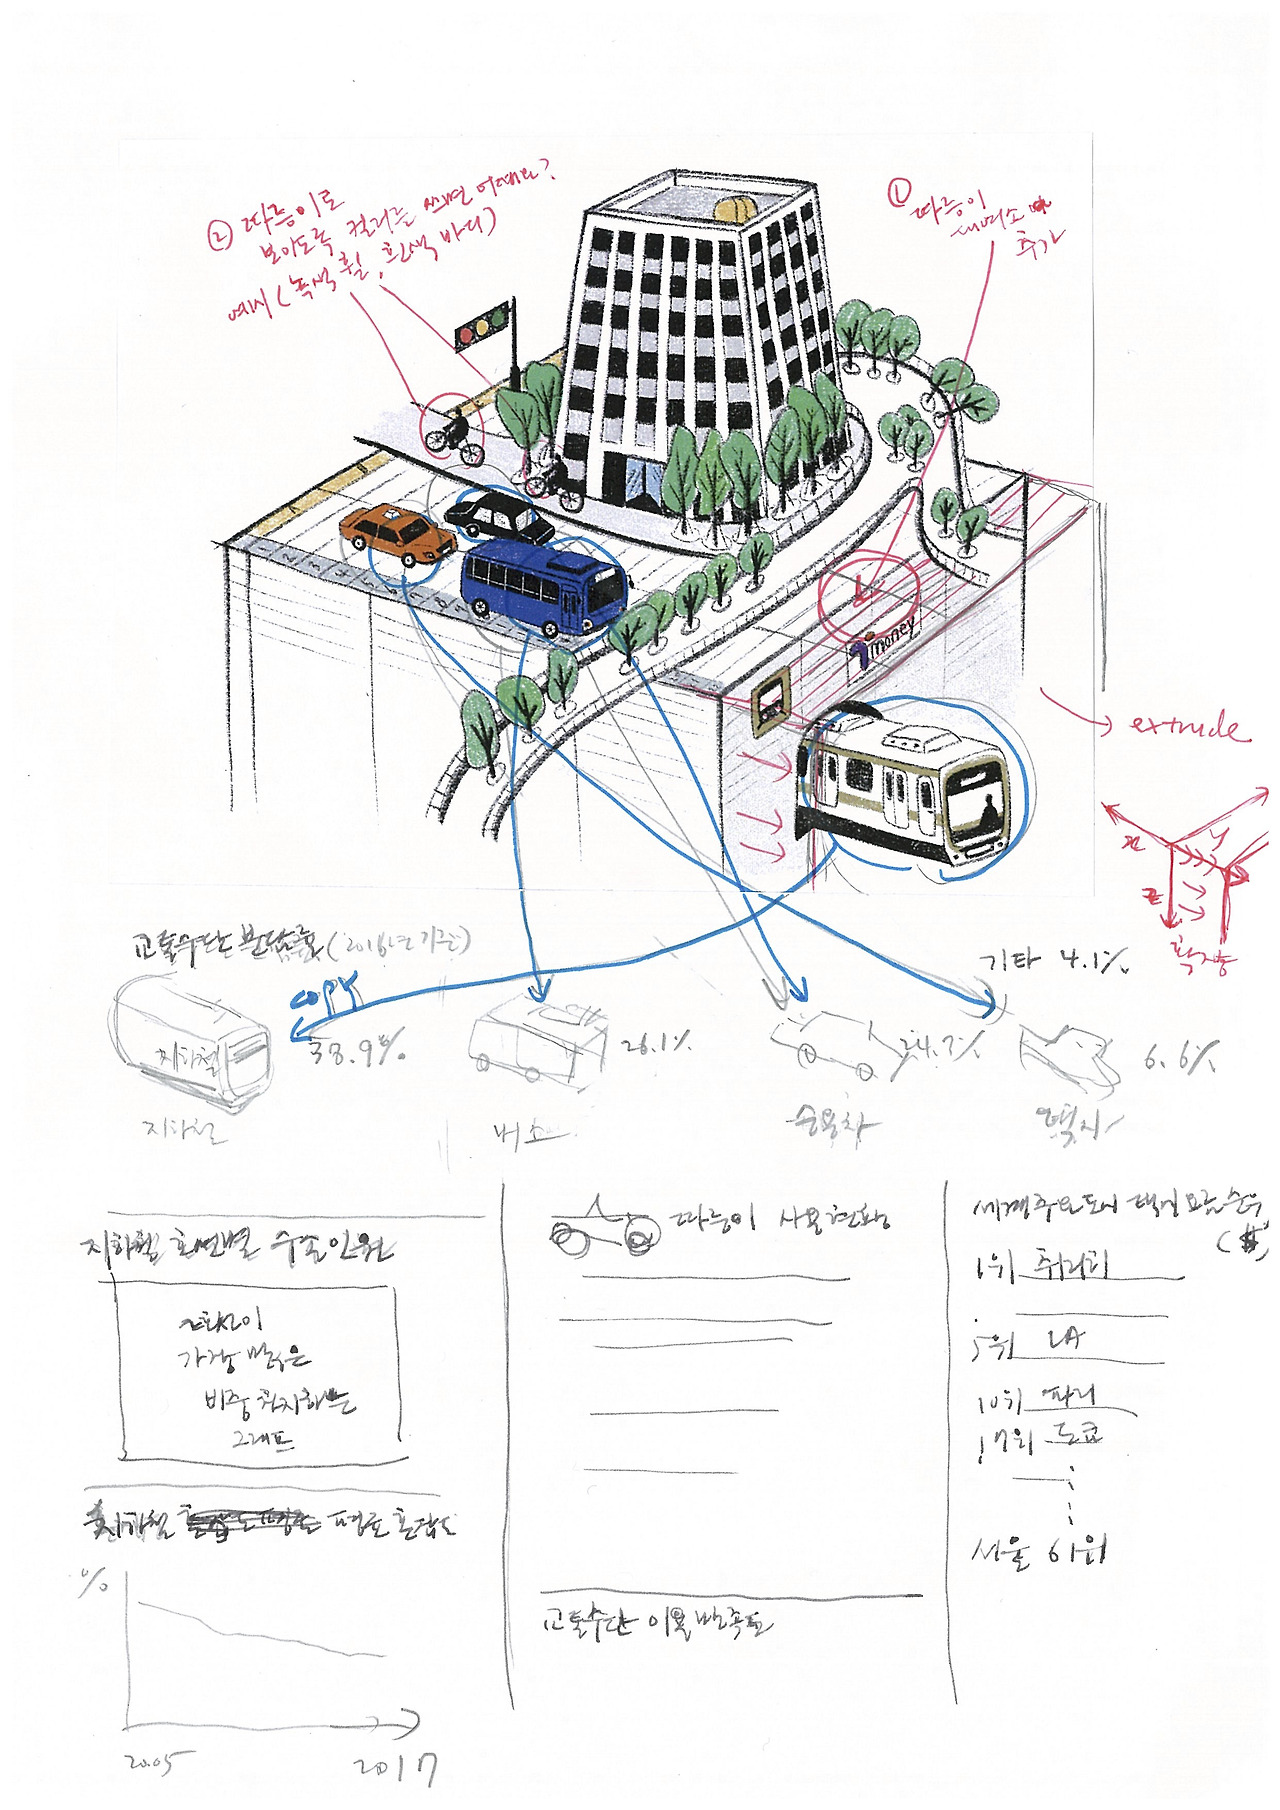 ② 따릉이로
보이도록 컬러를 쓰면 어때요?
예시(녹색 휠, 흰색 바디)
① 따릉이
대여소
추가
money
→ extrude
x
y
z
확장
교통수단 분담률 (2016년 기준)
기타 4.1%
copy
지하철
38.9%
26.1%
24.7%
6.6%
지하철
버스
승용차
택시
지하철 호선별 수송인원
2호선이
가장 많은
비중 차지하는
그래프
지하철 평균 혼잡도
%
2005
2017
따릉이 사용현황
교통수단 이용 만족도
세계주요도시 택시요금순위
($)
1위 취리히
5위 LA
10위 파리
17위 도쿄
서울 61위